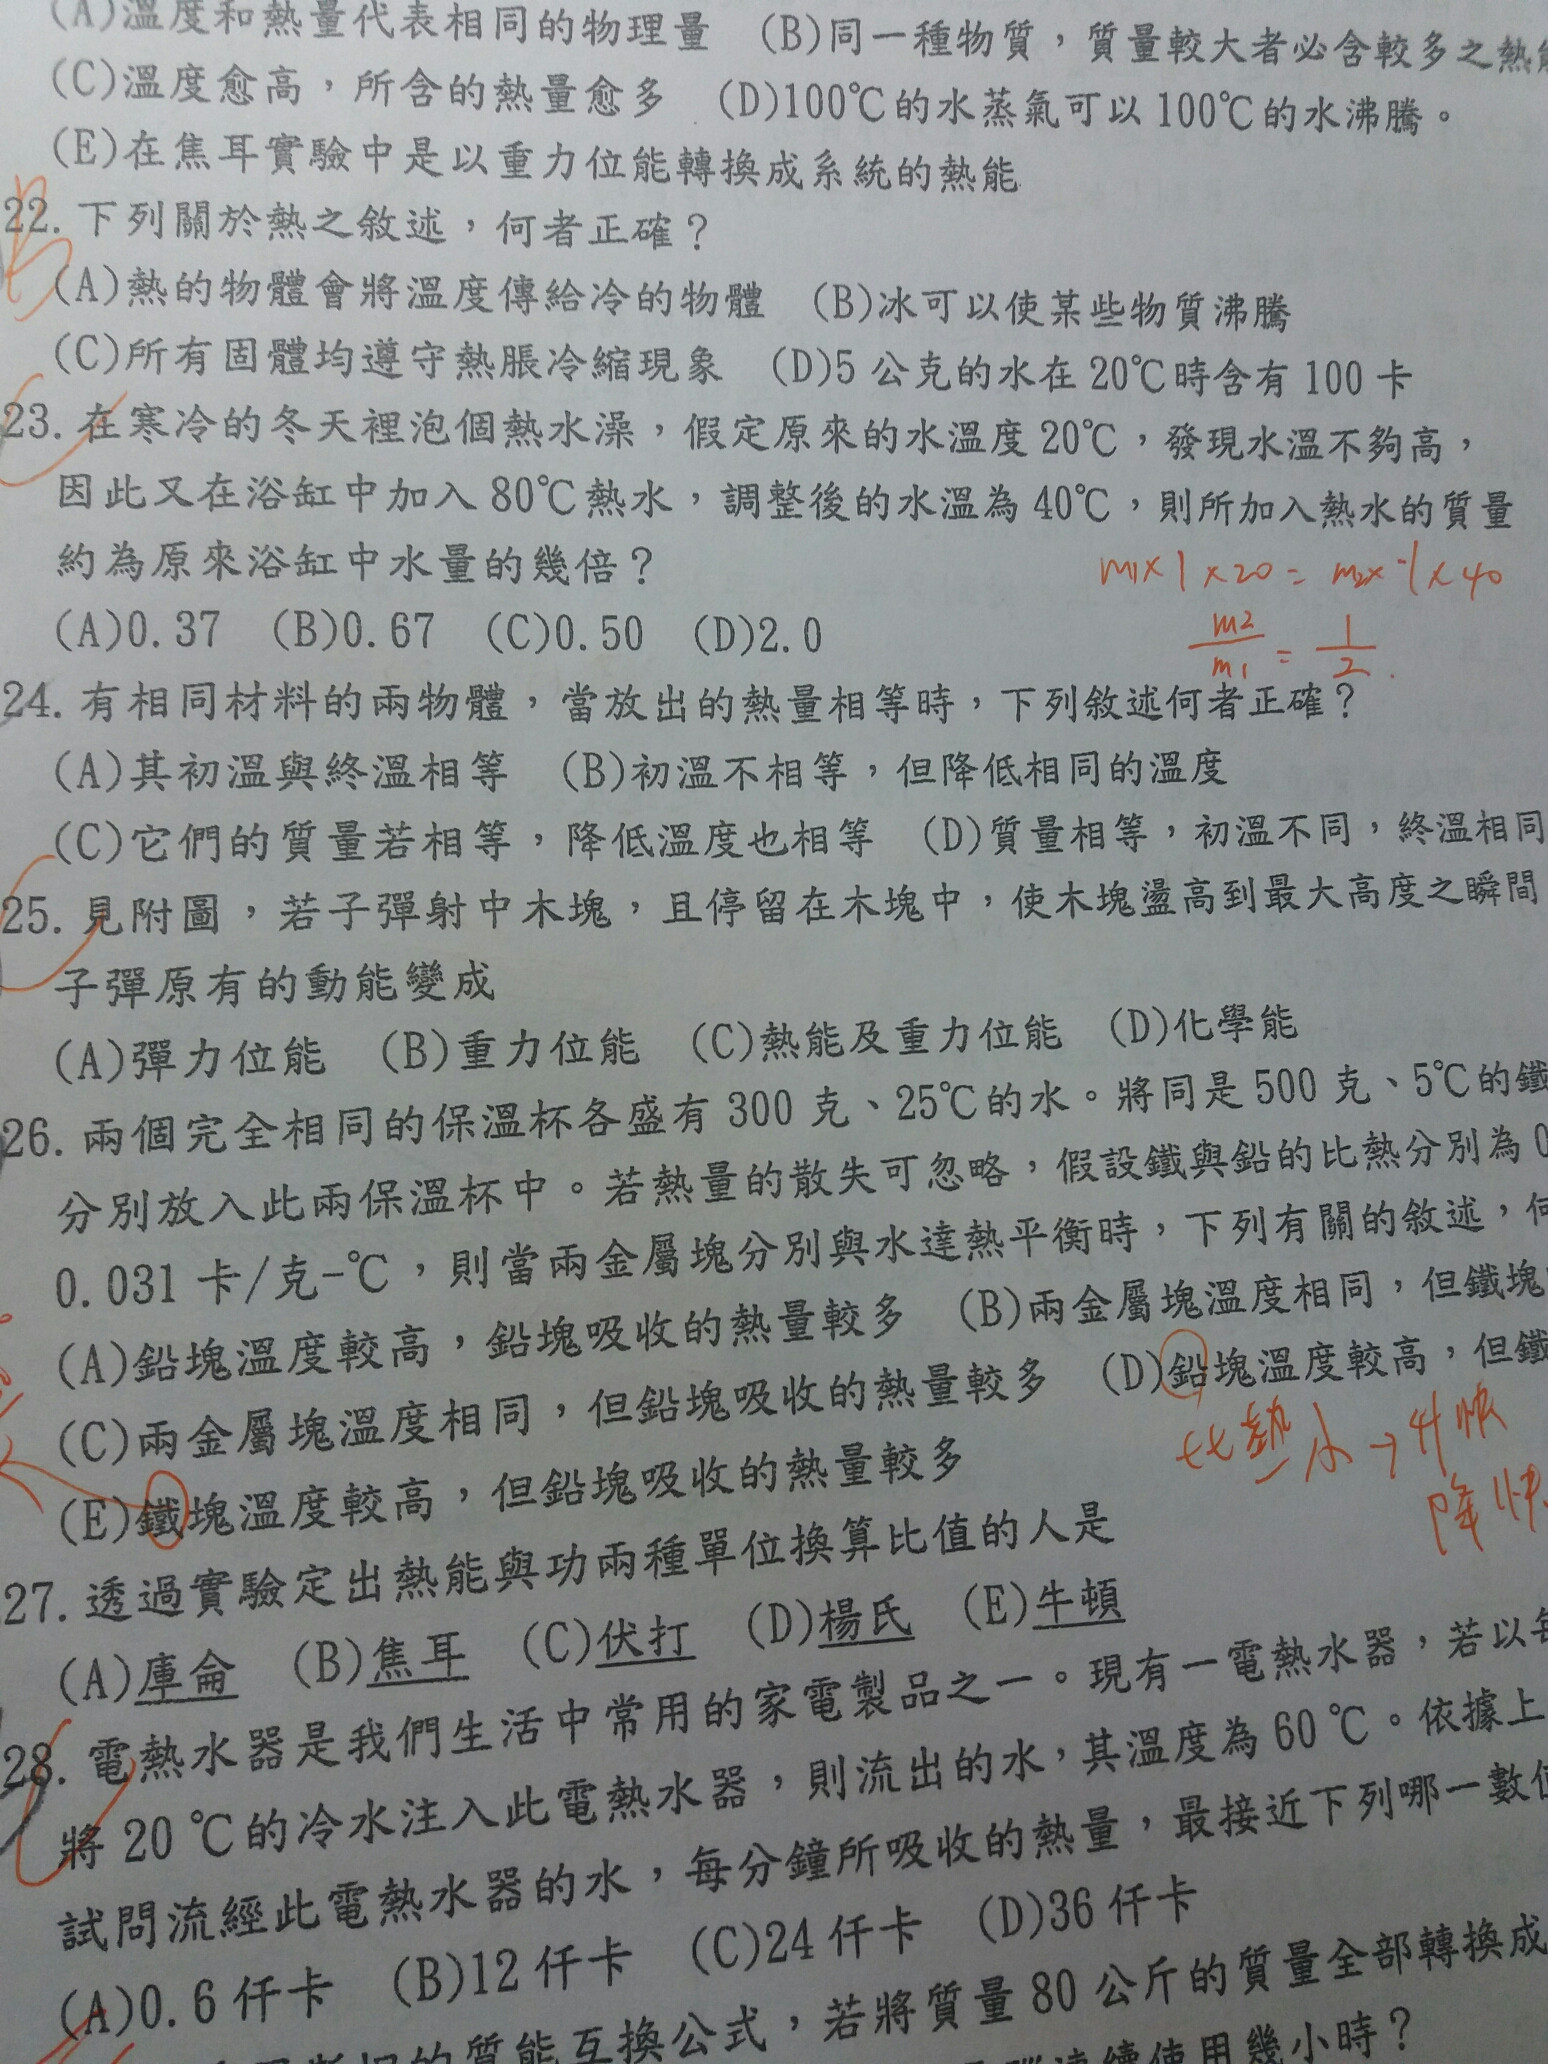 (A)溫度和熱量代表相同的物理量 (B)同一種物質，質量較大者必含較多之熱
(C)溫度愈高，所含的熱量愈多 (D)100℃的水蒸氣可以100℃的水沸騰。
(E)在焦耳實驗中是以重力位能轉換成系統的熱能
22. 下列關於熱之敘述，何者正確？
(A)熱的物體會將溫度傳給冷的物體 (B)冰可以使某些物質沸騰
(C)所有固體均遵守熱脹冷縮現象 (D)5 公克的水在 20℃時含有 100 卡
23. 在寒冷的冬天裡泡個熱水澡，假定原來的水溫度 20℃，發現水溫不夠高，
因此又在浴缸中加入 80℃熱水，調整後的水溫為 40℃，則所加入熱水的質量
約為原來浴缸中水量的幾倍？
m1×1×20=m2×-1×40
(A)0.37 (B)0.67 (C)0.50 (D)2.0
m2/m1=1/2.
24. 有相同材料的兩物體，當放出的熱量相等時，下列敘述何者正確？
(A)其初溫與終溫相等 (B)初溫不相等，但降低相同的溫度
(C)它們的質量若相等，降低溫度也相等 (D)質量相等，初溫不同，終溫相同
25. 見附圖，若子彈射中木塊，且停留在木塊中，使木塊盪高到最大高度之瞬間
子彈原有的動能變成
(A)彈力位能 (B)重力位能 (C)熱能及重力位能 (D)化學能
26. 兩個完全相同的保溫杯各盛有 300 克、25℃的水。將同是 500 克、5℃的鐵
分別放入此兩保溫杯中。若熱量的散失可忽略，假設鐵與鉛的比熱分別為 0
0.031 卡/克-℃，則當兩金屬塊分別與水達熱平衡時，下列有關的敘述，何
(A)鉛塊溫度較高，鉛塊吸收的熱量較多 (B)兩金屬塊溫度相同，但鐵塊
(C)兩金屬塊溫度相同，但鉛塊吸收的熱量較多 (D)鉛塊溫度較高，但鐵
(E)鐵塊溫度較高，但鉛塊吸收的熱量較多
比熱小→升快
降快
27. 透過實驗定出熱能與功兩種單位換算比值的人是
(A)庫侖 (B)焦耳 (C)伏打 (D)楊氏 (E)牛頓
28. 電熱水器是我們生活中常用的家電製品之一。現有一電熱水器，若以每
將 20 ℃的冷水注入此電熱水器，則流出的水，其溫度為 60 ℃。依據上
試問流經此電熱水器的水，每分鐘所吸收的熱量，最接近下列哪一數值
(A)0.6 仟卡 (B)12 仟卡 (C)24 仟卡 (D)36 仟卡
的質能互換公式，若將質量 80 公斤的質量全部轉換成
連續使用幾小時？